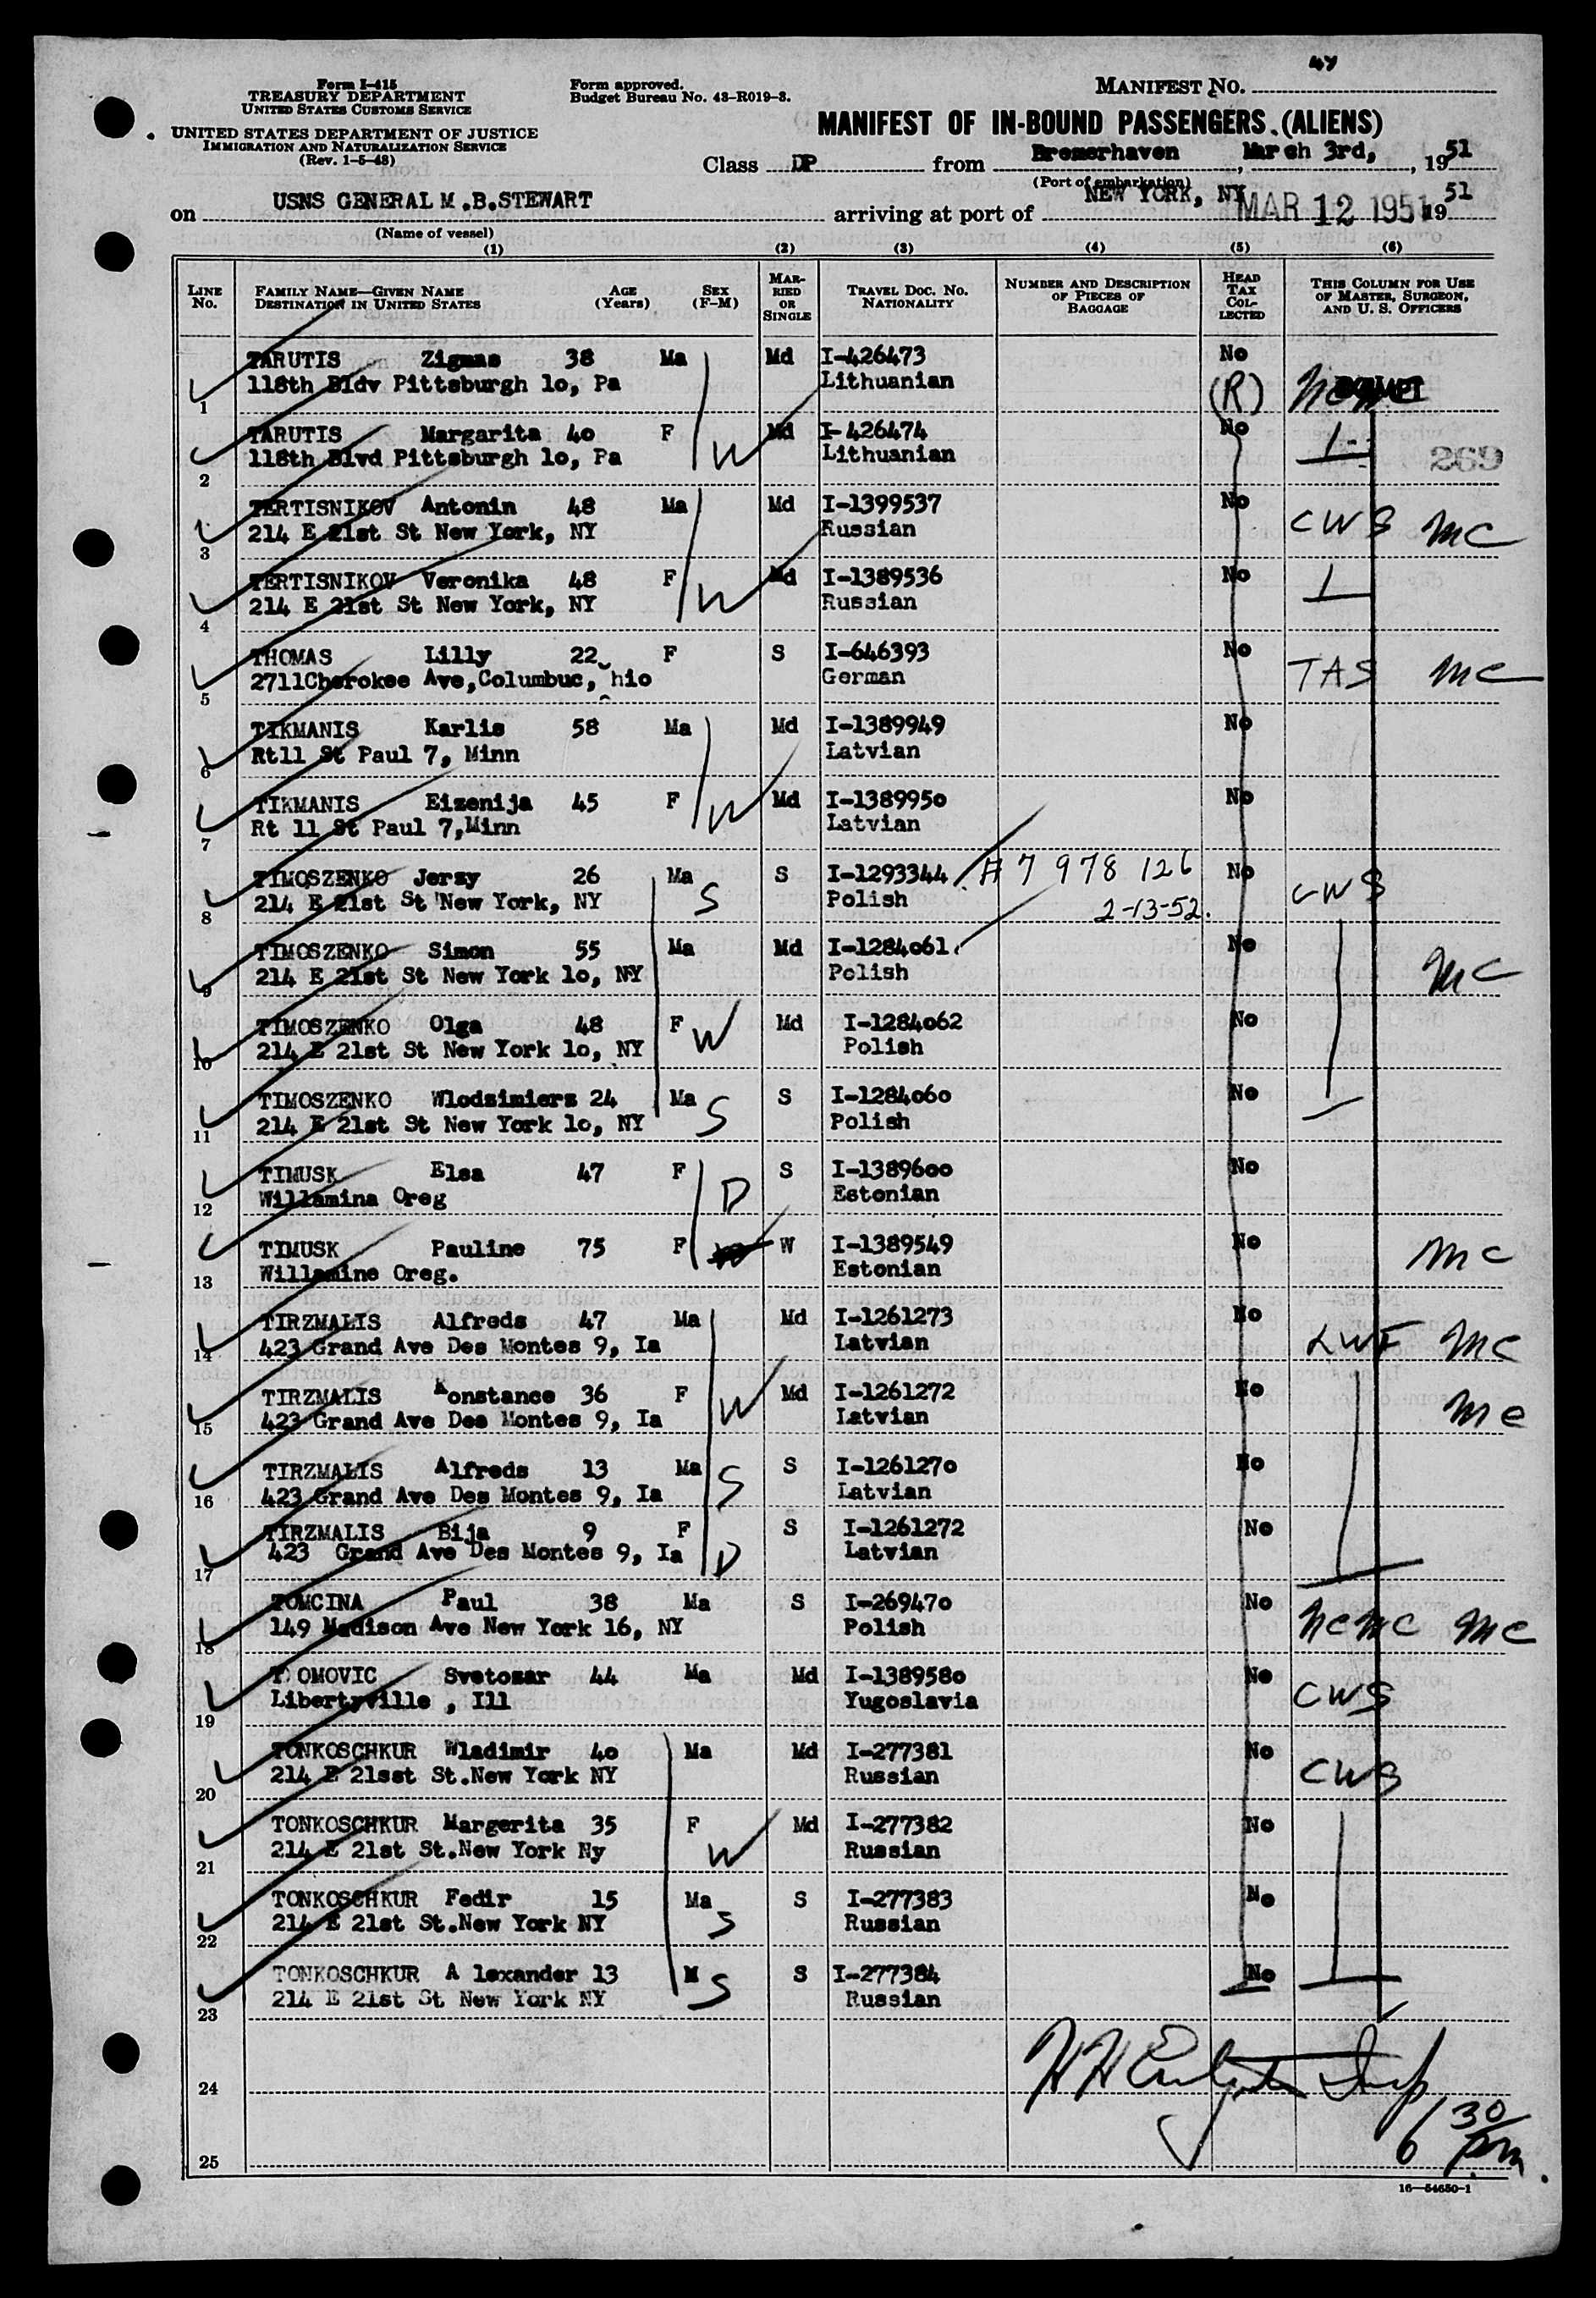 47
Form I-415
TREASURY DEPARTMENT
UNITED STATES CUSTOMS SERVICE
Form approved.
Budget Bureau No. 43-R019-3.
MANIFEST NO.
UNITED STATES DEPARTMENT OF JUSTICE
IMMIGRATION AND NATURALIZATION SERVICE
(Rev. 1-5-48)
MANIFEST OF IN-BOUND PASSENGERS (ALIENS)
Class DP from Bremerhaven, March 3rd, 1951
(Port of embarkation)
on USNS GENERAL M.B.STEWART arriving at port of NEW YORK, NY MAR 12 1951 1951
(Name of vessel)
(1) (2) (3) (4) (5) (6)
LINE NO. FAMILY NAME—GIVEN NAME DESTINATION IN UNITED STATES AGE (Years) SEX (F-M) MARRIED OR SINGLE TRAVEL DOC. NO. NATIONALITY NUMBER AND DESCRIPTION OF PIECES OF BAGGAGE HEAD TAX COLLECTED THIS COLUMN FOR USE OF MASTER, SURGEON, AND U. S. OFFICERS
TARUTIS Zigmas 38 Ma Md I-426473 No
1 118th Bldv Pittsburgh 10, Pa Lithuanian (R) NCWC
TARUTIS Margarita 40 F W Md I-426474 No
2 118th Blvd Pittsburgh 10, Pa Lithuanian 269
TERTISNIKOV Antonin 48 Ma Md I-1399537 No CWS MC
3 214 E 21st St New York, NY Russian
TERTISNIKOV Veronika 48 F W Md I-1389536 No
4 214 E 21st St New York, NY Russian
THOMAS Lilly 22 F S I-646393 No TAS MC
5 2711Cherokee Ave,Columbuc, hio German
TIKMANIS Karlis 58 Ma Md I-1389949 No
6 Rt11 St Paul 7, Minn Latvian
TIKMANIS Eizenija 45 F W Md I-1389950 No
7 Rt 11 St Paul 7,Minn Latvian
TIMOSZENKO Jerzy 26 Ma S S I-1293344 A7 978 126 No CWS
8 214 E 21st St New York, NY Polish 2-13-52.
TIMOSZENKO Simon 55 Ma Md I-1284061 No MC
9 214 E 21st St New York 10, NY Polish
TIMOSZENKO Olga 48 F W Md I-1284062 No
10 214 E 21st St New York 10, NY Polish
TIMOSZENKO Wlodzimierz 24 Ma S S I-1284060 No
11 214 E 21st St New York 10, NY Polish
TIMUSK Elsa 47 F D S I-1389600 No
12 Willamina Oreg Estonian
TIMUSK Pauline 75 F W I-1389549 No MC
13 Willamine Oreg. Estonian
TIRZMALIS Alfreds 47 Ma Md I-1261273 No LWF MC
14 423 Grand Ave Des Montes 9, Ia Latvian
TIRZMALIS Konstance 36 F W Md I-1261272 No MC
15 423 Grand Ave Des Montes 9, Ia Latvian
TIRZMALIS Alfreds 13 Ma S S I-1261270 No
16 423 Grand Ave Des Montes 9, Ia Latvian
TIRZMALIS Bija 9 F D S I-1261272 No
17 423 Grand Ave Des Montes 9, Ia Latvian
TOMCINA Paul 38 Ma S I-269470 No NCWC MC
18 149 Madison Ave New York 16, NY Polish
T OMOVIC Svetozar 44 Ma Md I-1389580 No CWS
19 Libertyville , Ill Yugoslavia
TONKOSCHKUR Wladimir 40 Ma Md I-277381 No CWS
20 214 E 21sst St.New York NY Russian
TONKOSCHKUR Margerita 35 F W Md I-277382 No
21 214 E 21st St.New York Ny Russian
TONKOSCHKUR Fedir 15 Ma S S I-277383 No
22 214 E 21st St.New York NY Russian
TONKOSCHKUR A lexander 13 M S S I-277384 No
23 214 E 21st St New York NY Russian
24
Insp
6 30 pm.
25
16—54650-1